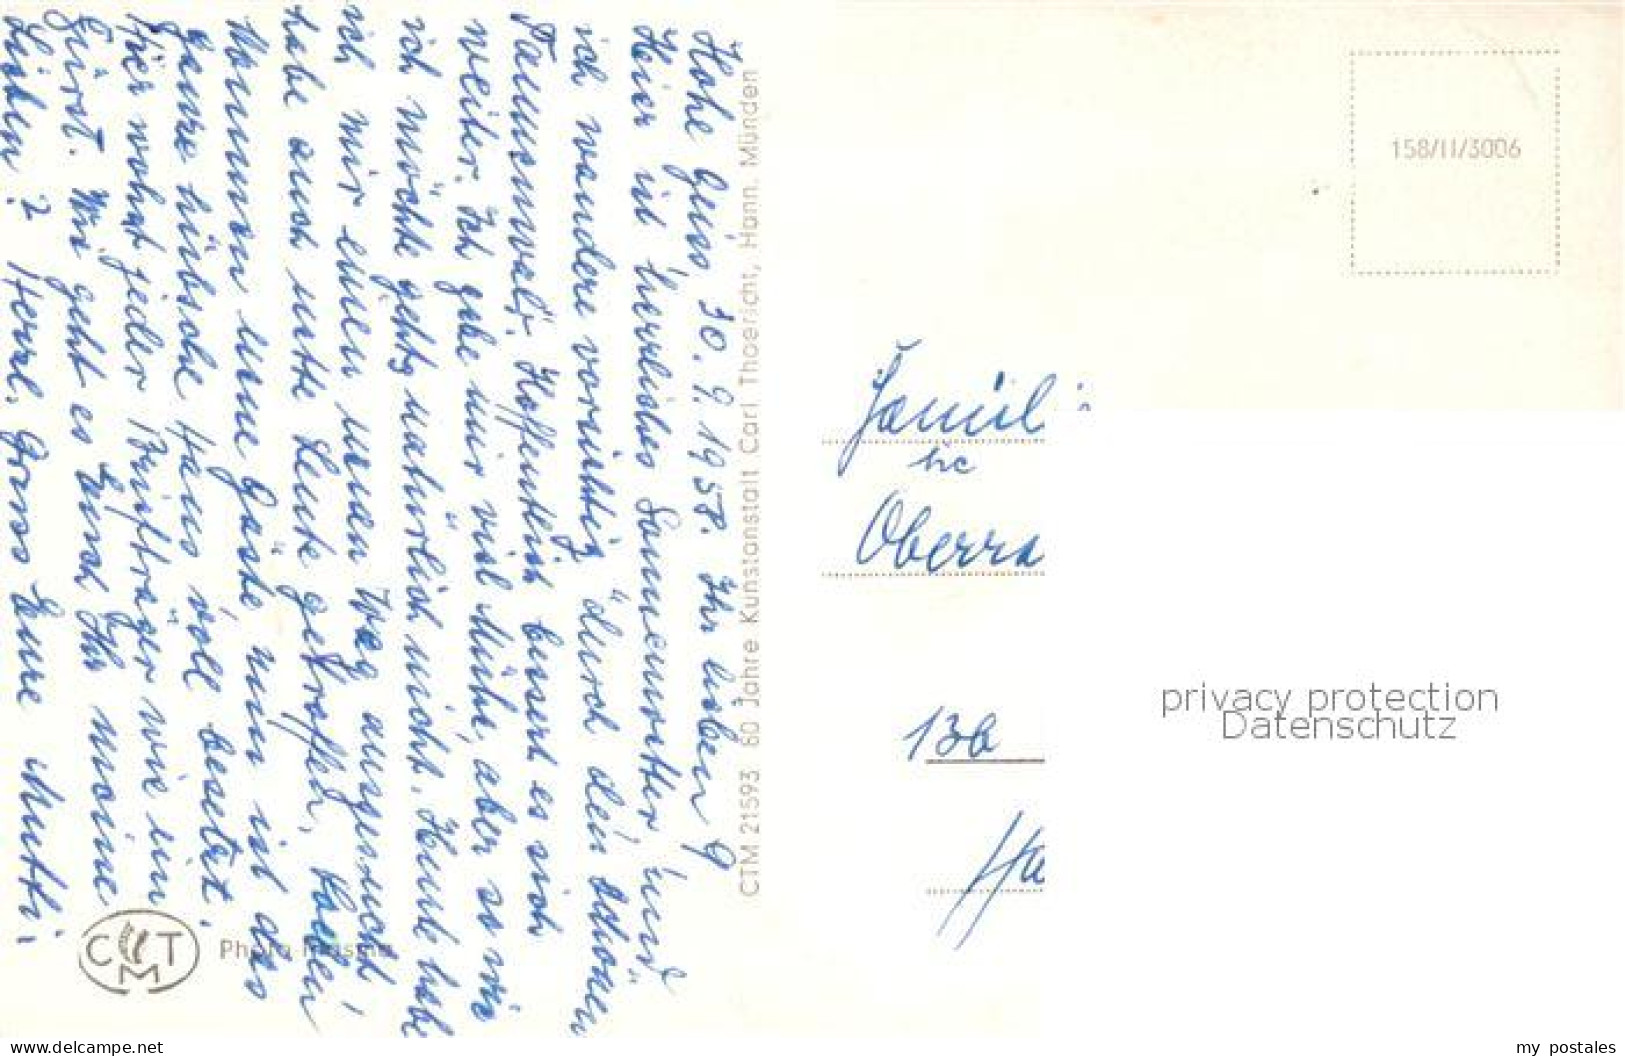 Hohe Geiss, 30.9.1958. Ihr lieben 9
Hier ist herrliches Sommerwetter und
ich wandere vorsichtig durch den schönen
Tannenwald. Hoffentlich bessert es sich
weiter. Ich gebe mir viel Mühe, aber so wie
ich möchte gehts natürlich nicht. Heute habe
ich mir einen neuen Weg ausgesucht!
habe auch nette Leute getroffen,
Mommsen seine Gäste nun ist das
ganze hübsche Haus voll besetzt.
Hier wohnt jeder Briefträger wie ein
Fürst. Wie geht es Euch Ihr meine
Lieben? Herzl. Gruss Eure Mutti
CTM 21593 60 Jahre Kunstanstalt Carl Thoericht, Hann. Münden
CMT
Photo
158/II/3006
Famil
Oberra
13b
Ha
privacy protection
Datenschutz
www.delcampe.net
my_postales